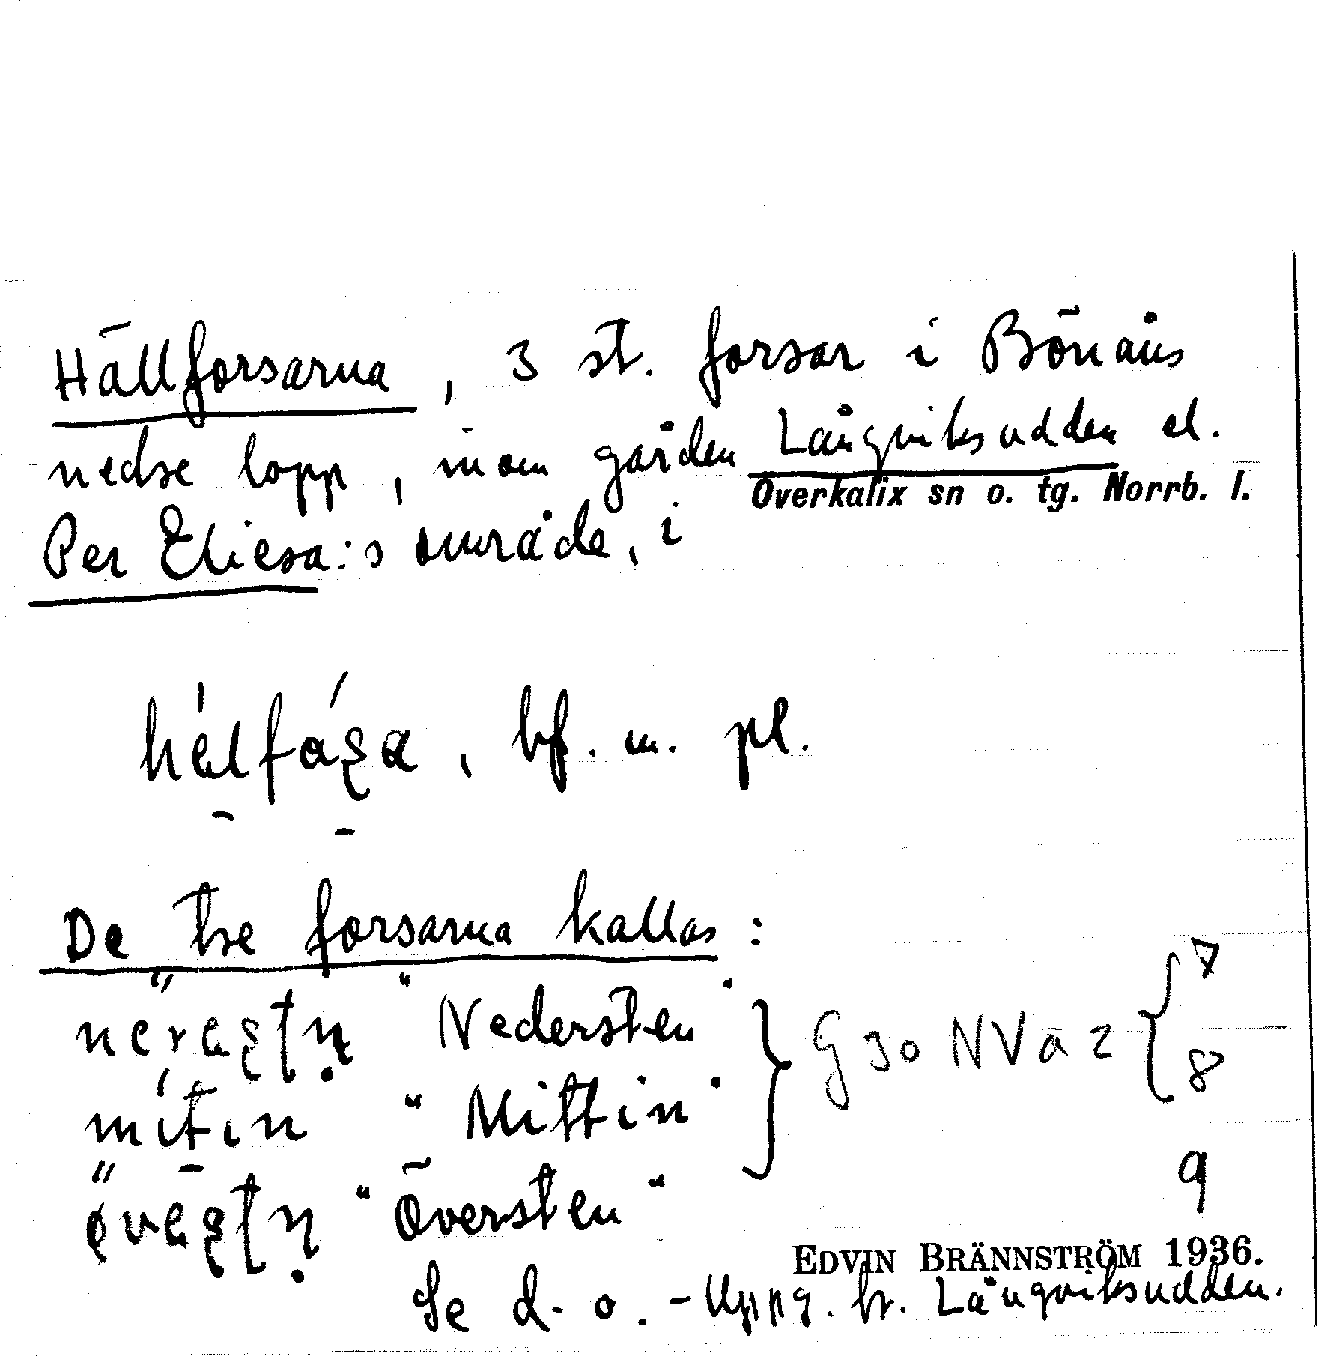 Hällforsarna, 3 st. forsar i Bönåns
nedre lopp, inom gården Långviksudden el.
Överkalix sn o. tg. Norrb. l.
Per Eliesa:s område, i
bf. m. pl.
De tre forsarna kallas:
"Nedersten"
G 30 NV a 2 { 7
mítin "Mittin"
8
9
"Översten"
EDVIN BRÄNNSTRÖM 1936.
Se d. o. - Uppg. fr. Långviksudden.